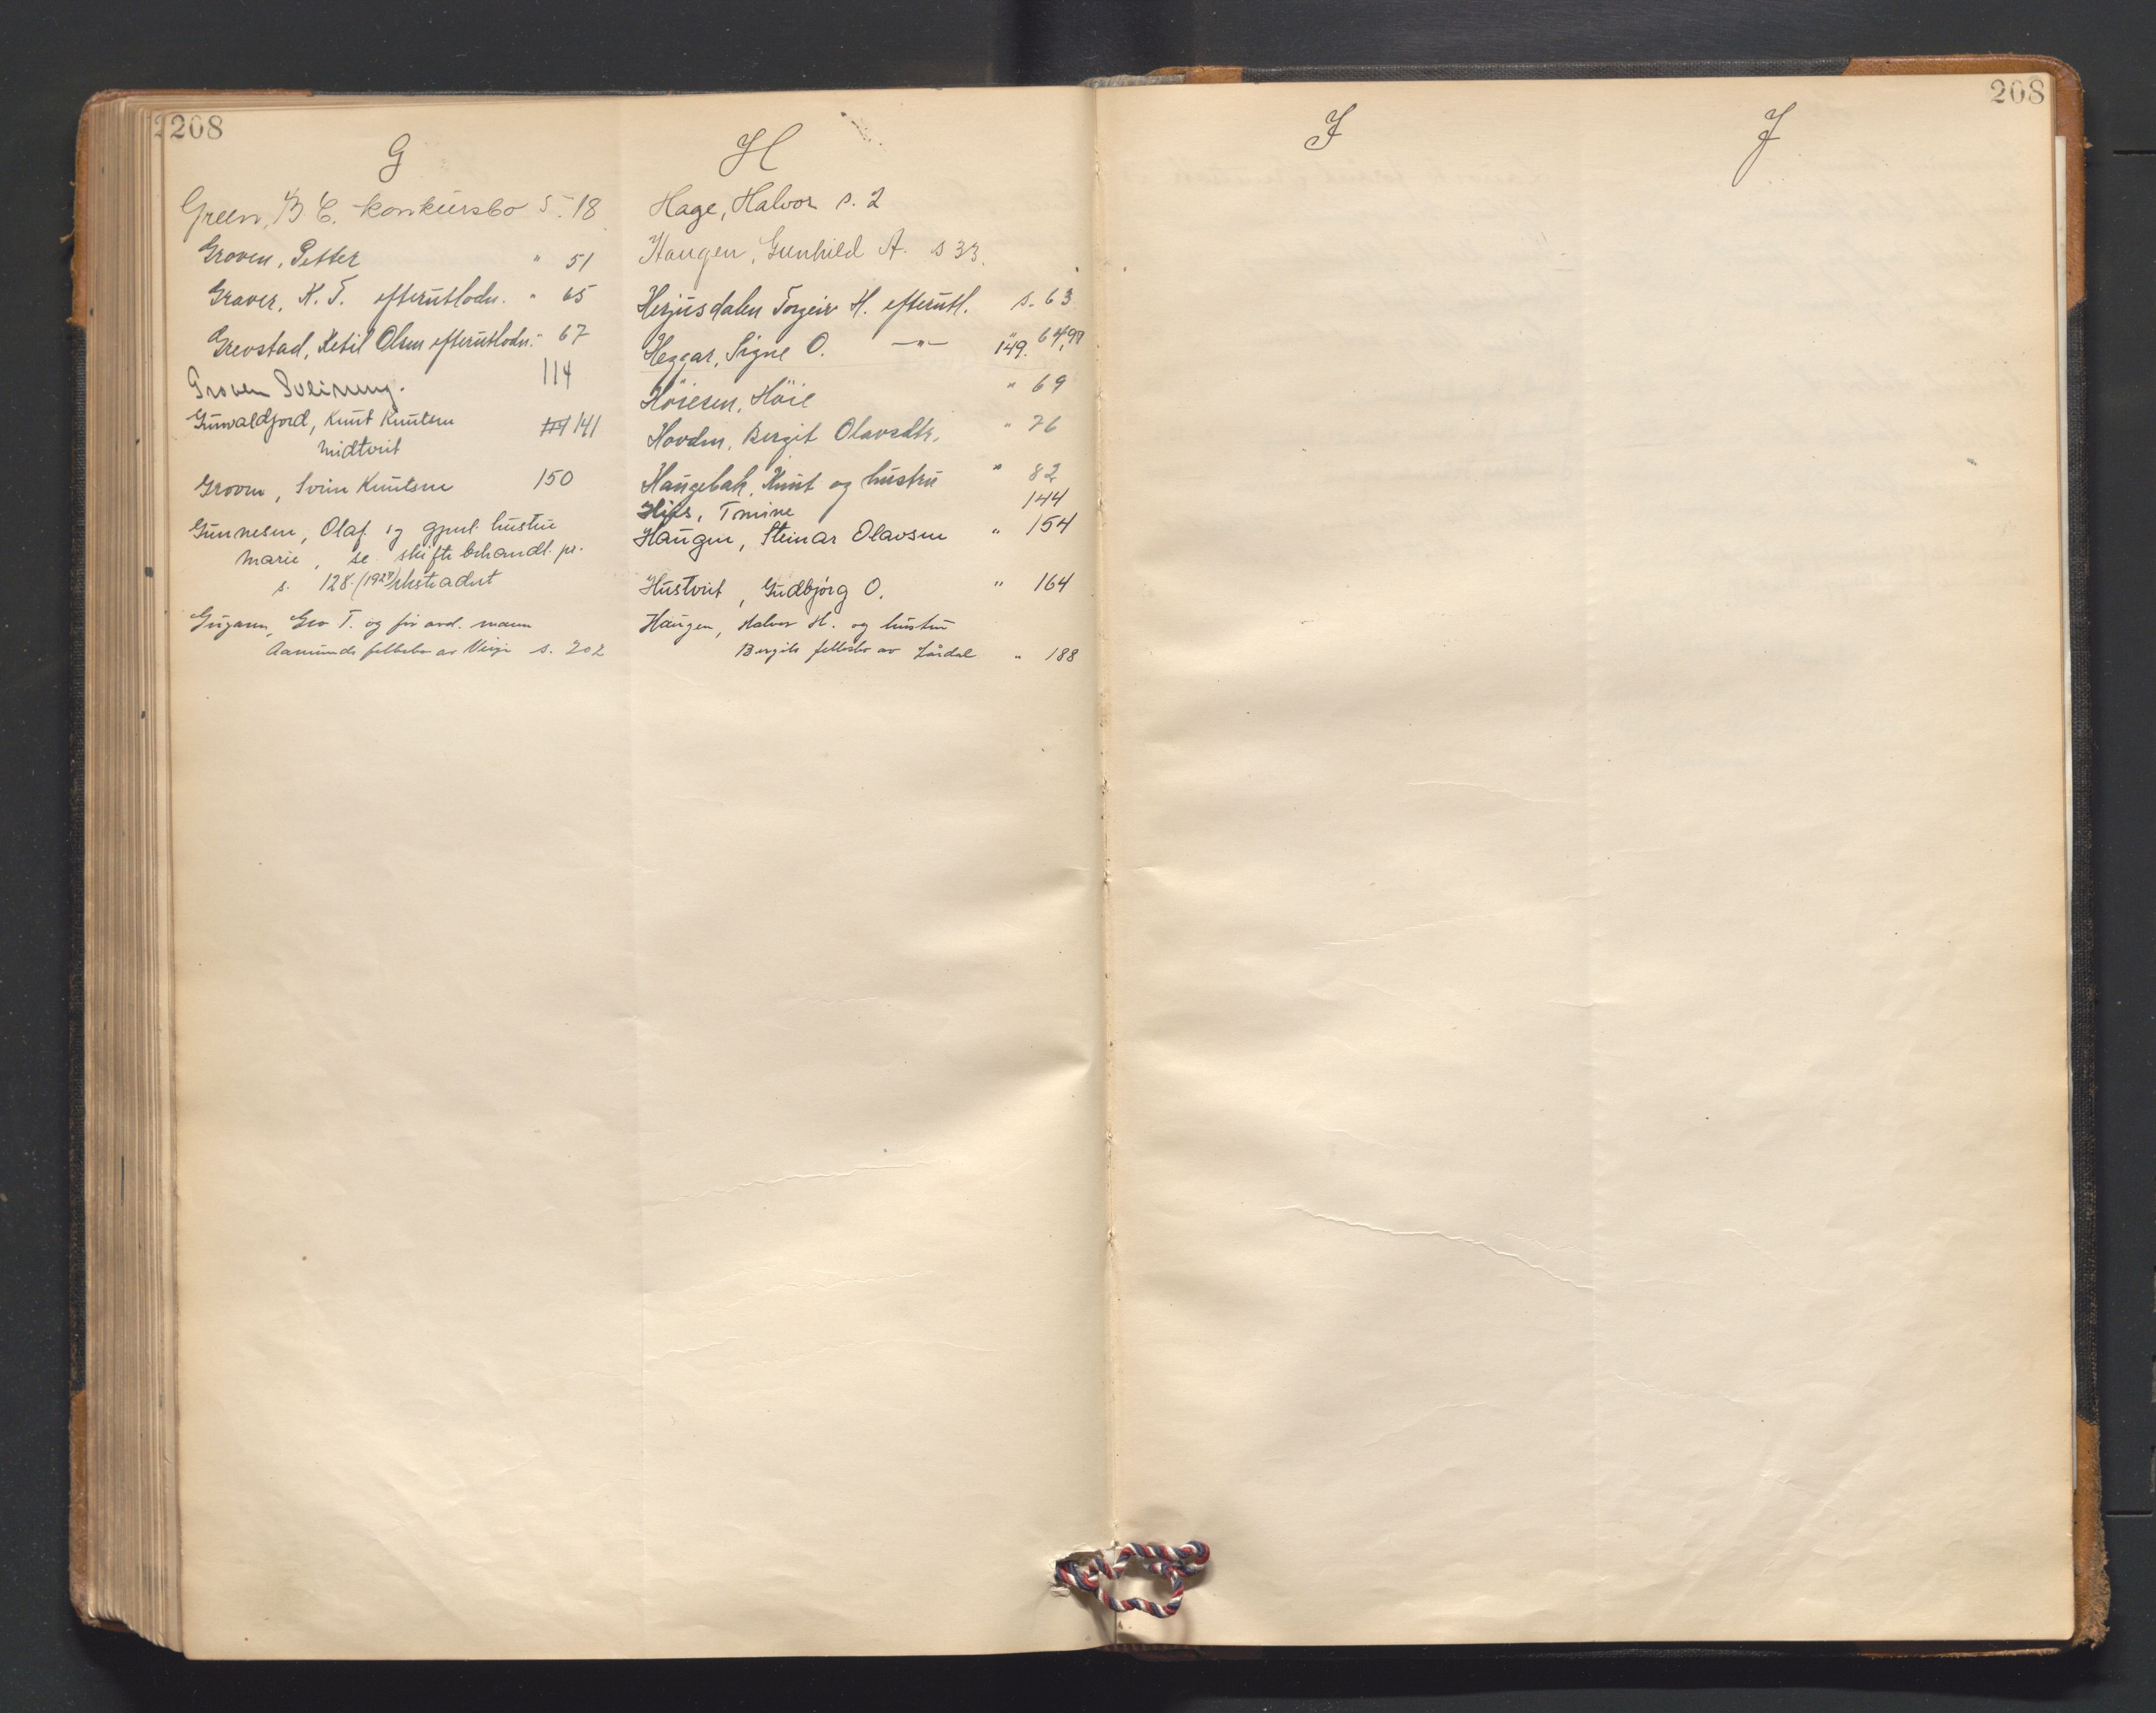 208
G
Green, B C. konkursbo s. 18
Groven, Petter " 51
Graver, K. T. efterutlodn. " 65
Grevstad, Ketil Olsen efterutlodn. " 67
Groven Sveinung. 114
Gunvaldjord, Knut Knutsen 114 141
Midtveit
Groven, Svein Knutsen 150
Gunnesen, Olaf og gjenl. hustru
Marie, se skiftebehandl. pr.
s. 128. (1927) ekstradert
Gro T. og for avd. mann
Aamunds fellesbo av Vinje s. 202
H
Hage, Halvor s. 2
Haugen, Gunhild A. s 33.
Herjusdalen Torgeir H. efterutl. s. 63
Heggar, Signe O. —"— " 149. 64, 97
Höiesen, Höie " 69
Hovden, Bergit Olavsdtr. " 76
Haugebak, Knut og hustru " 82
Tomine 144
Haugen, Steinar Olavsen " 154
Hustveit, Gudbjørg O. " 164
Haugen, Halvor H. og hustru
Bergits fellesbo av Lårdal " 188
I
J
208